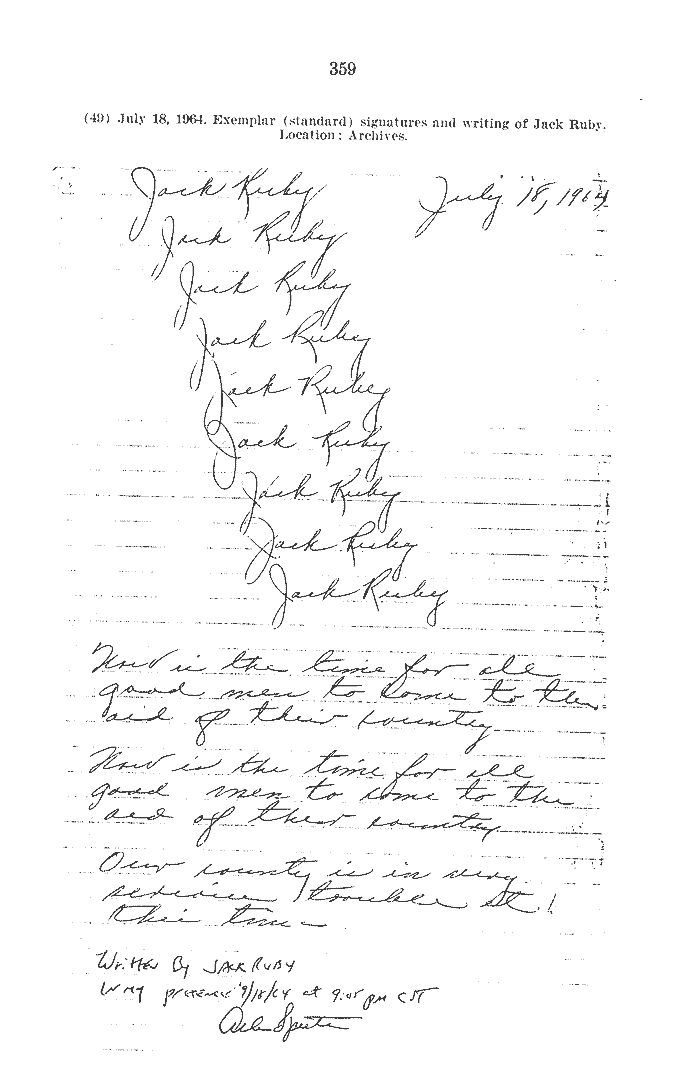 359
(49) July 18, 1964. Exemplar (standard) signatures and writing of Jack Ruby.
Location: Archives.
Jack Ruby July 18, 1964
Jack Ruby
Jack Ruby
Jack Ruby
Jack Ruby
Jack Ruby
Jack Ruby
Jack Ruby
Jack Ruby
Now is the time for all
good men to come to the
aid of their country
Now is the time for all
good men to come to the
aid of their country
Our county is in very
serious trouble at !
this time
Written By JACK RUBY
in my presence 7/18/64 at 9:05 pm CST
Arlen Specter